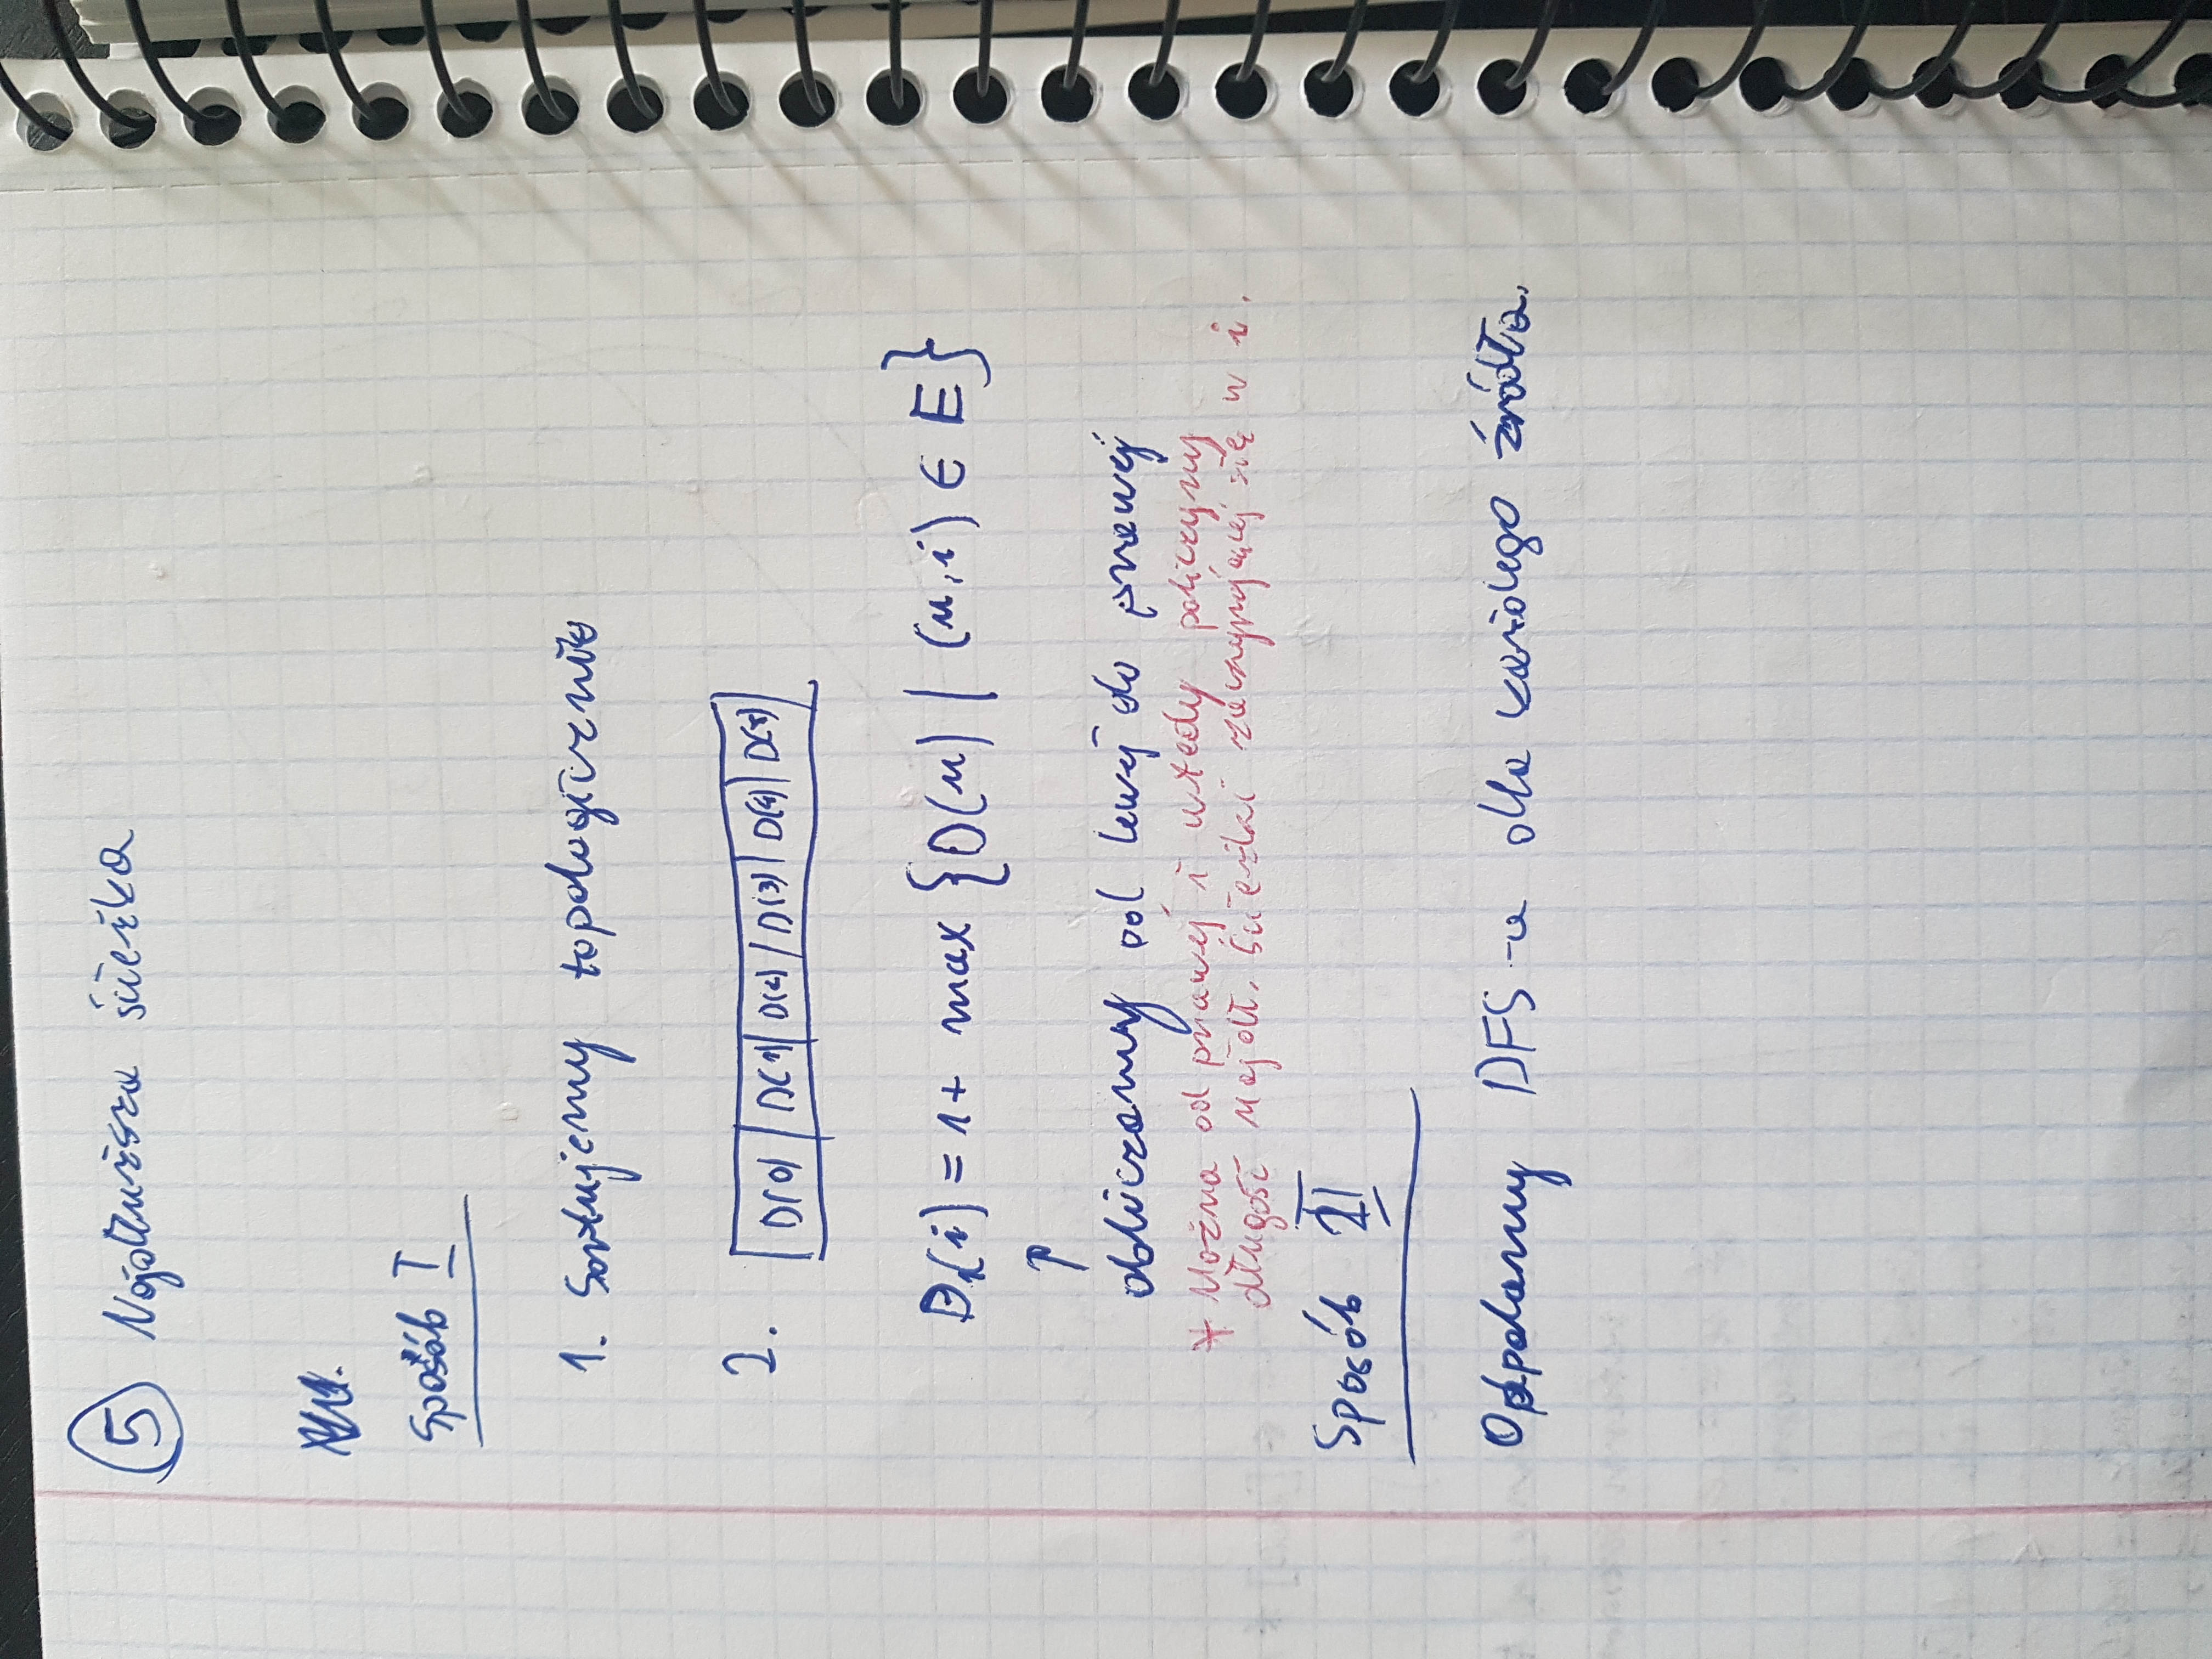 5 Najdłuższa ścieżka
Sposób I
1. Sortujemy topologicznie
2. D(0) D(1) D(2) D(3) D(4) D(5)
D(i) = 1 + max {D(u) | (u,i) ∈ E}
↑
obliczamy od lewej do prawej
* Można od prawej i wtedy policzymy
długość najdł. ścieżki zaczynającej się w i.
Sposób II
Odpalamy DFS-a dla każdego źródła.